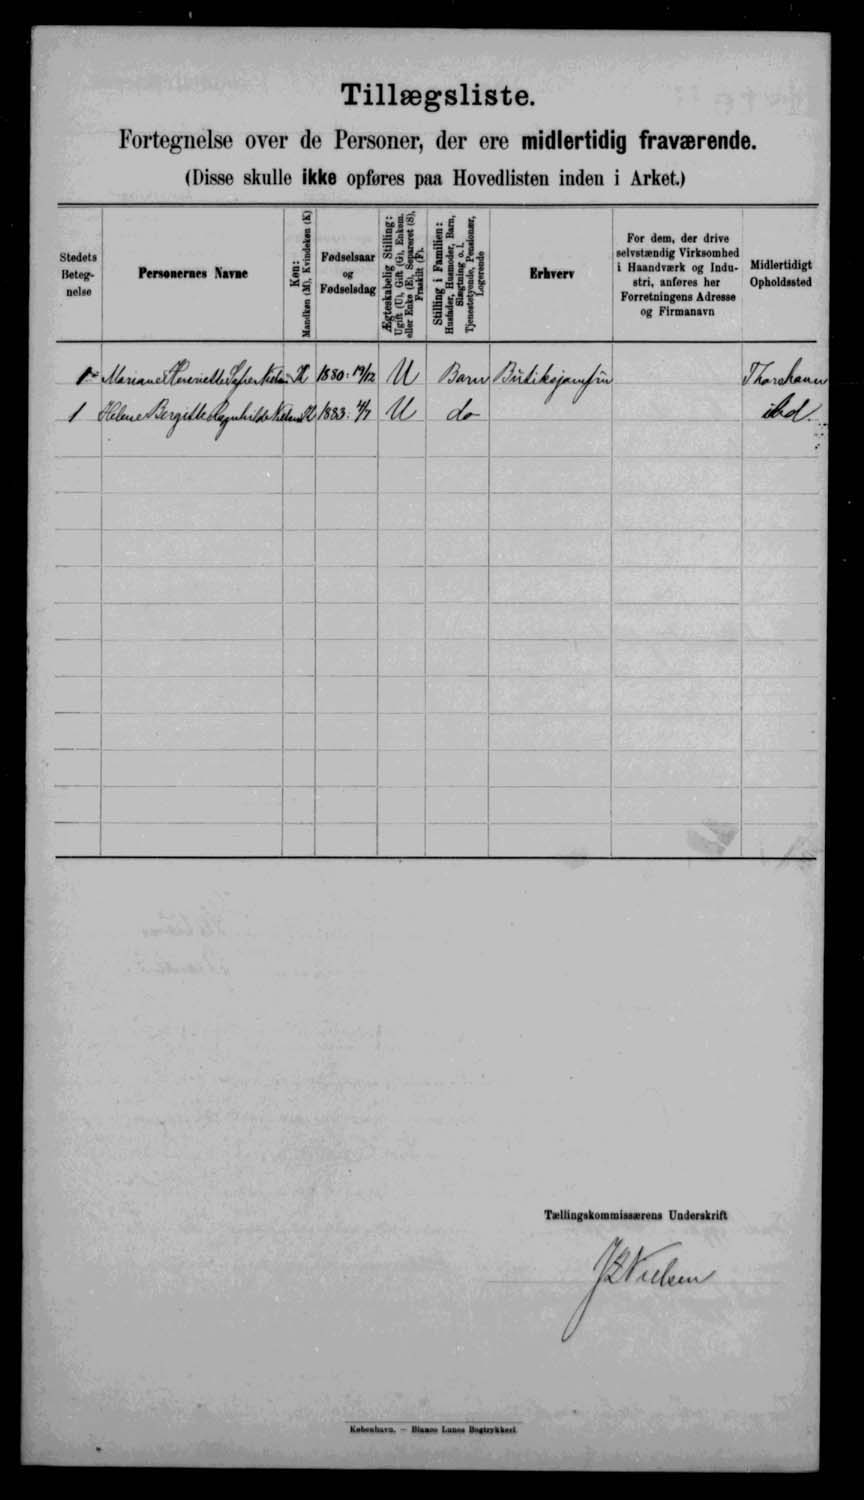 Tillægsliste.
Fortegnelse over de Personer, der ere midlertidig fraværende.
(Disse skulle ikke opføres paa Hovedlisten inden i Arket.)
Stedets Betegnelse
Personernes Navne
Køn: Mandkøn (M), Kvindekøn (K)
Fødselsaar og Fødselsdag
Ægteskabelig Stilling: Ugift (U), Gift (G), Enkem. eller Enke (E), Separeret (S), Fraskilt (F).
Stilling i Familien: Husfader, Husmoder, Barn, Slægtning o. l. Tjenestetyende, Pensionær, Logerende
Erhverv
For dem, der drive selvstændig Virksomhed i Haandværk og Industri, anføres her Forretningens Adresse og Firmanavn
Midlertidigt Opholdssted
1 Mariane Henriette K 1880 19/12 U Barn Butiksjomfru Thorshavn
1 Helene Bergitte Ragnhilde K 1883 U do ibd.
Tællingskommissærens Underskrift
Nielsen
København. — Bianco Lunos Bogtrykkeri.